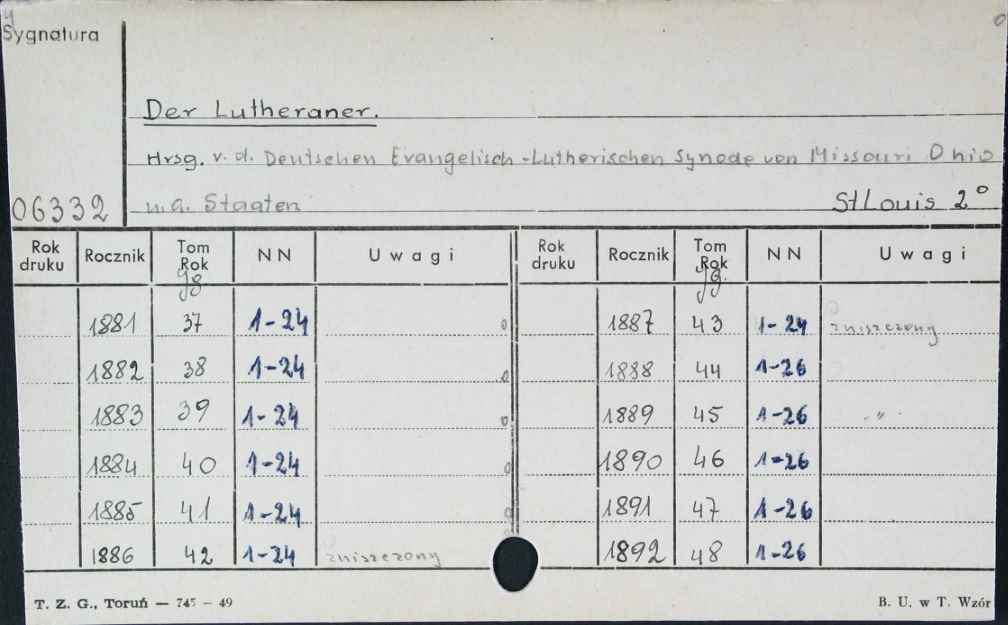 Sygnatura
Der Lutheraner.
Hrsg. v. d. Deutschen Evangelisch-Lutherischen Synode von Missouri Ohio
06332 u. a. Staaten St Louis 2°
Rok druku Rocznik Tom Rok NN Uwagi Rok druku Rocznik Tom Rok NN Uwagi
Jg. Jg.
1881 37 1-24 0 1887 43 1-24 zniszczony
1882 38 1-24 0 1888 44 1-26
1883 39 1-24 0 1889 45 1-26 -"-
1884 40 1-24 0 1890 46 1-26
1885 41 1-24 0 1891 47 1-26
1886 42 1-24 zniszczony 1892 48 1-26
T. Z. G., Toruń — 745 — 49 B. U. w T. Wzór